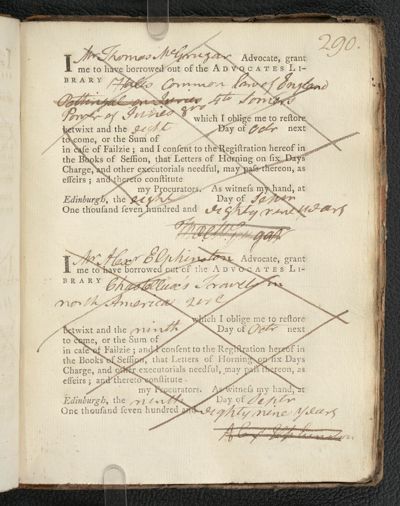 290.
I Mr Thomas McGrugar Advocate, grant
me to have borrowed out of the ADVOCATES LI-
BRARY Hales Common Law of England
Pettingal on Juries 4to Somers
Power of Juries 8vo which I oblige me to reſtore
betwixt and the eight Day of Octr next
to come, or the Sum of
in caſe of Failzie; and I conſent to the Regiſtration hereof in
the Books of Seſſion, that Letters of Horning on ſix Days
Charge, and other executorials needful, may paſs thereon, as
effeirs; and thereto conſtitute
my Procurators. As witneſs my hand, at
Edinburgh, the eight Day of Septr
One thouſand ſeven hundred and eighty nine years
Tho McGrugar
I Mr Alexr Elphinston Advocate, grant
me to have borrowed out of the ADVOCATES LI-
BRARY Chastellux's Travels in
north America 2
which I oblige me to reſtore
betwixt and the ninth Day of Octr next
to come, or the Sum of
in caſe of Failzie; and I conſent to the Regiſtration hereof in
the Books of Seſſion, that Letters of Horning on ſix Days
Charge, and other executorials needful, may paſs thereon, as
effeirs; and thereto conſtitute
my Procurators. As witneſs my hand, at
Edinburgh, the ninth Day of Septr
One thouſand ſeven hundred and eighty nine years
Alexr Elphinston